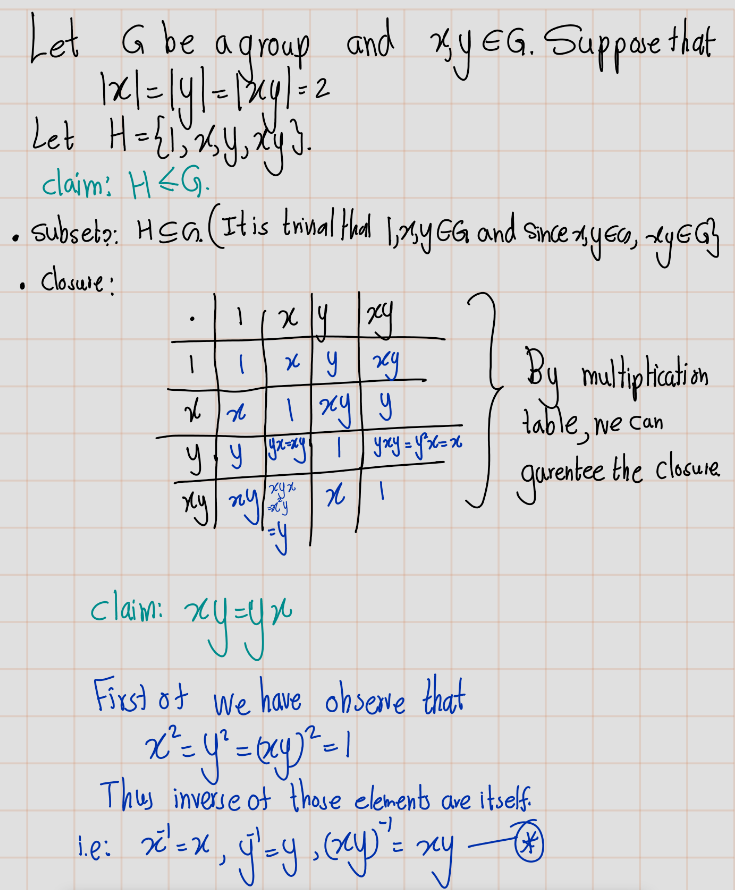 Let G be a group and x,y ∈ G. Suppose that
|x|=|y|=|xy|=2
Let H={1,x,y,xy}.
claim: H ≤ G.
• subset?: H⊆G. (It is trival that 1,x,y∈G and since x,y∈G, xy∈G}
• Closure:
. | 1 | x | y | xy
1 | 1 | x | y | xy
x | x | 1 | xy | y
y | y | yx=xy | 1 | yxy=y²x=x
xy | xy | xyx =x²y =y | x | 1
By multiplication
table, we can
garentee the closure
claim: xy=yx
First of we have observe that
x²=y²=(xy)²=1
Thus inverse of those elements are itself.
i.e: x⁻¹=x, y⁻¹=y, (xy)⁻¹= xy —⊛